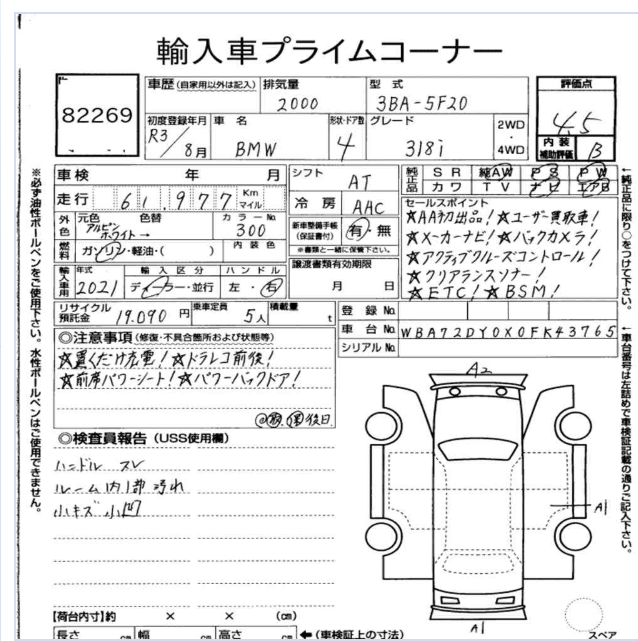 輸入車プライムコーナー
82269
車歴 (自家用以外は記入) 排気量 2000 型式 3BA-5F20
評価点 4.5
内装補助評価 B
初度登録年月 R3/8月 車名 BMW 形状・ドア数 4 グレード 318i 2WD・4WD
車検 年 月
走行 61,977 Km マイル
外色 元色 アルピンホワイト→ 色替 カラーNo. 300
燃料 ガソリン・軽油・( ) 内装色
輸入車用 年式 2021 輸入区分 ディーラー・並行 ハンドル 左・右
リサイクル預託金 19,090円 乗車定員 5人 積載量 t
シフト AT
冷房 AAC
新車整備手帳(保証書付) 有・無
※書類と一緒に保管下さい。
譲渡書類有効期限
月 日
純正品 SR 純AW PS PW
純正品 カワ TV ナビ エアB
セールスポイント
☆AA初出品!☆ユーザー買取車!
☆メーカーナビ!☆バックカメラ!
☆アクティブクルーズコントロール!
☆クリアランスソナー!
☆ETC!☆BSM!
登録No.
車台No. WBA72DY0X0FK43765
シリアルNo.
◎注意事項 (修復・不具合箇所および状態等)
☆置くだけ充電!☆ドラレコ前後!
☆前席パワーシート!☆パワーバックドア!
後日
◎検査員報告 (USS使用欄)
ハンドル スレ
ルーム内1部汚れ
小キズ 小凹
A2
A1
A1
スペア
【荷台内寸】約 × × (cm)
長さ cm 幅 cm 高さ cm ←(車検証上の寸法)
※必ず油性ボールペンをご使用下さい。水性ボールペンはご使用できません。
←純正品に限り○をつけて下さい。
←車台番号は左詰めで車検証記載の通りご記入下さい。